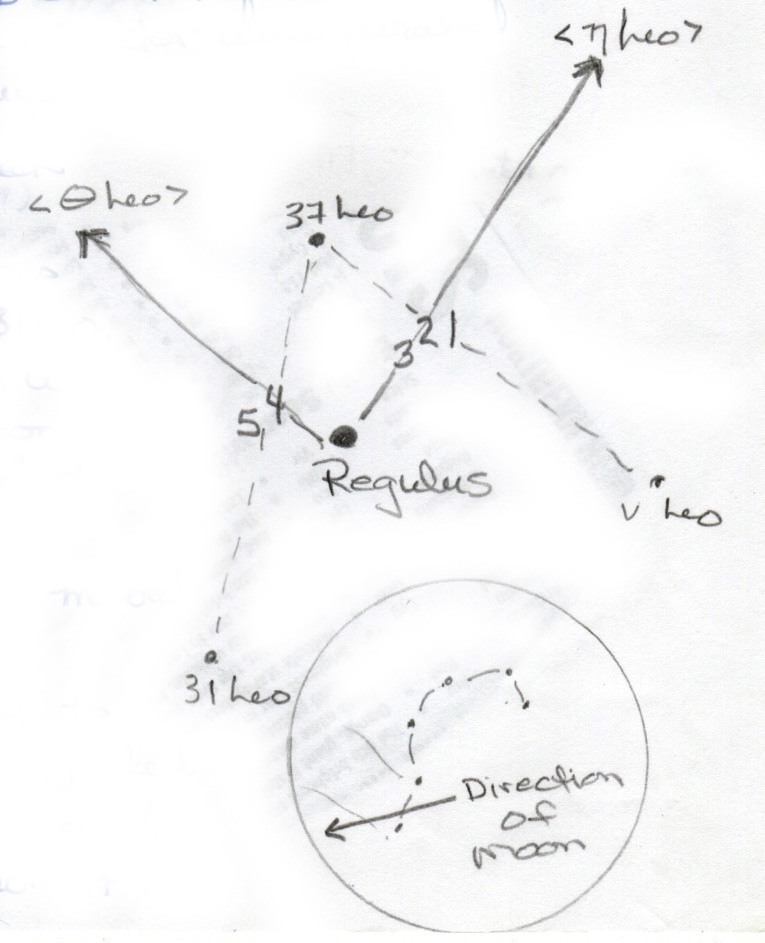 <η Leo>
<θ Leo>
37 Leo
2 1
3
4
5
Regulus
ν Leo
31 Leo
Direction
of
moon